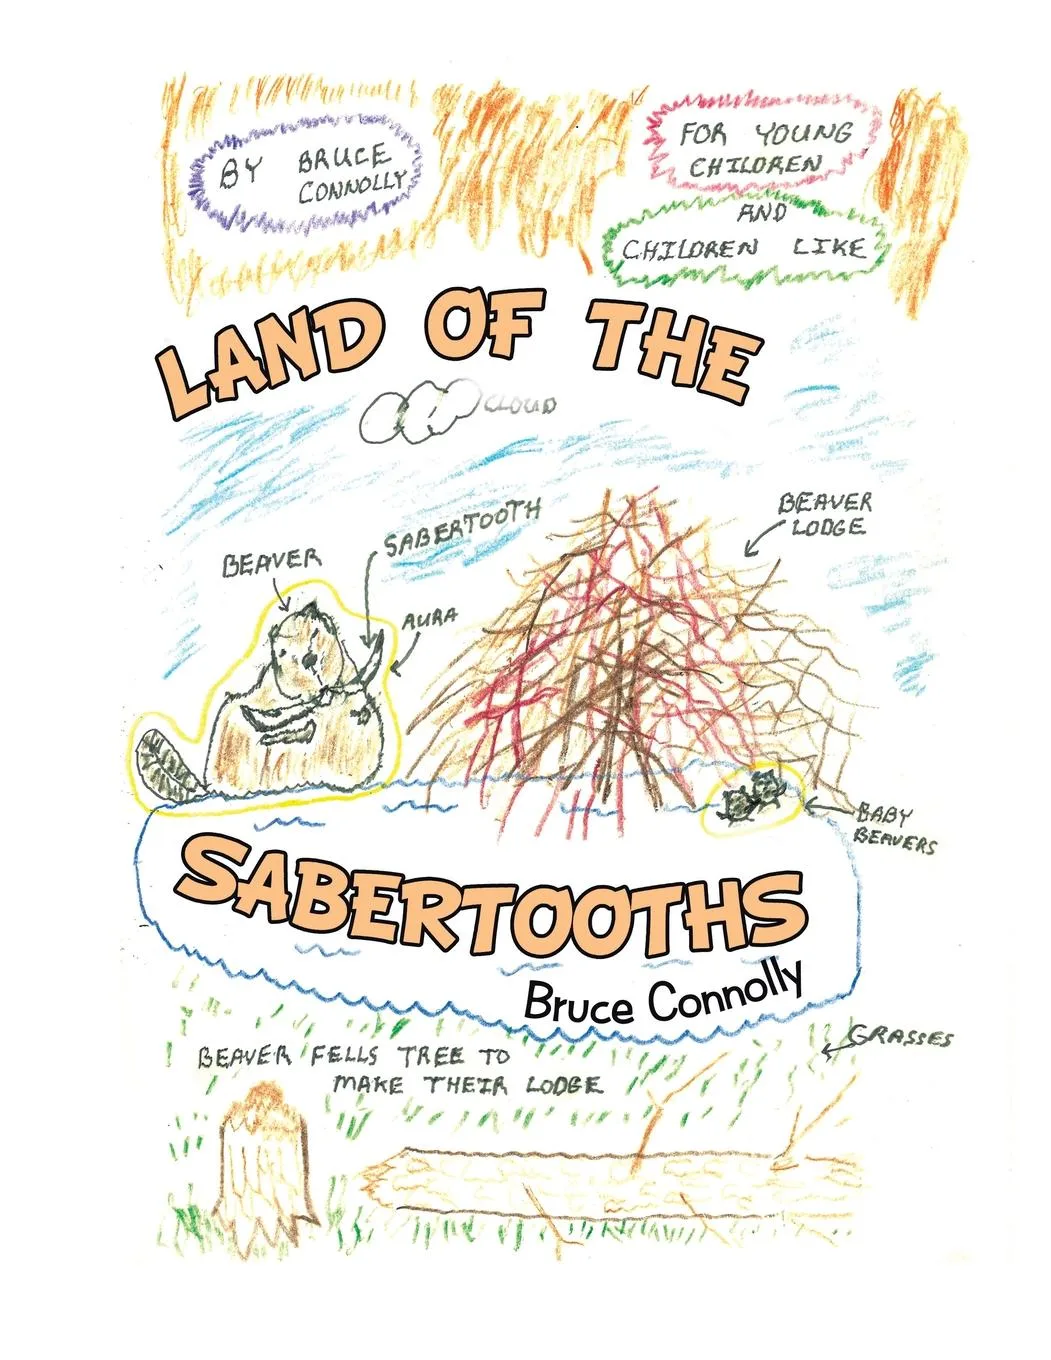 BY BRUCE
CONNOLLY
FOR YOUNG
CHILDREN
AND
CHILDREN LIKE
LAND OF THE
CLOUD
BEAVER
LODGE
SABERTOOTH
BEAVER
AURA
BABY
BEAVERS
SABERTOOTHS
Bruce Connolly
GRASSES
BEAVER FELLS TREE TO
MAKE THEIR LODGE